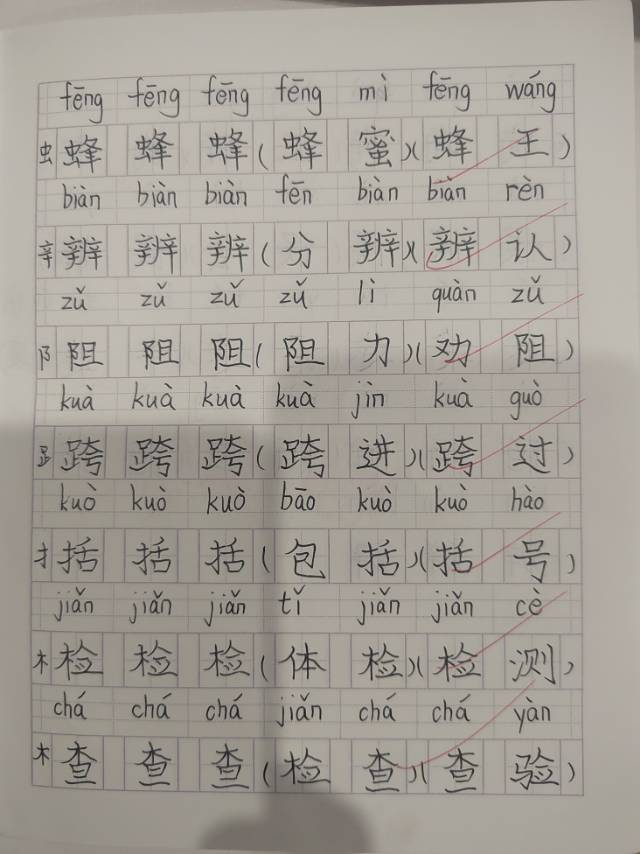 fēng fēng fēng fēng mì fēng wáng
虫 蜂 蜂 蜂 ( 蜂 蜜 )( 蜂 王 )
biàn biàn biàn fēn biàn biàn rèn
辛 辨 辨 辨 ( 分 辨 )( 辨 认 )
zǔ zǔ zǔ zǔ lì quàn zǔ
阝 阻 阻 阻 ( 阻 力 )( 劝 阻 )
kuà kuà kuà kuà jìn kuà guò
𧾷 跨 跨 跨 ( 跨 进 )( 跨 过 )
kuò kuò kuò bāo kuò kuò hào
扌 括 括 括 ( 包 括 )( 括 号 )
jiǎn jiǎn jiǎn tǐ jiǎn jiǎn cè
木 检 检 检 ( 体 检 )( 检 测 )
chá chá chá jiǎn chá chá yàn
木 查 查 查 ( 检 查 )( 查 验 )